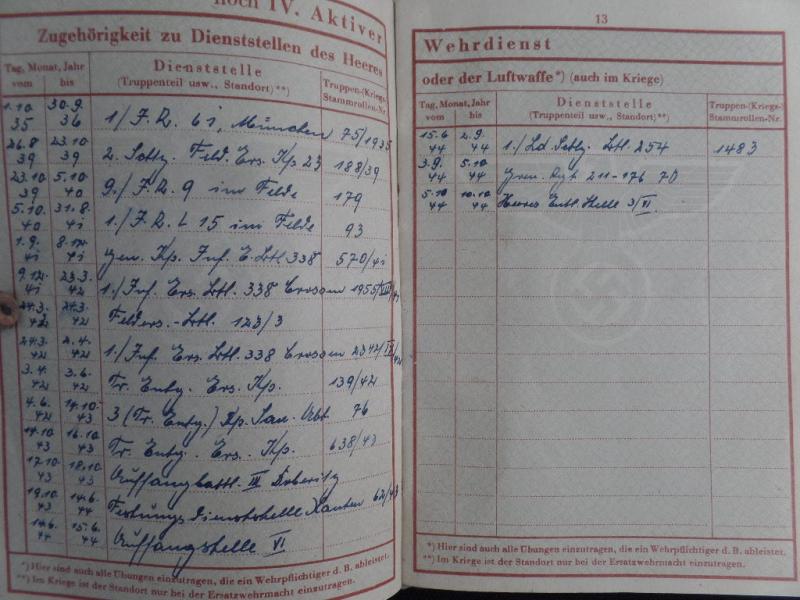 noch IV. Aktiver
Zugehörigkeit zu Dienststellen des Heeres
Tag, Monat, Jahr
vom bis
Dienststelle
(Truppenteil usw., Standort)**)
Truppen-(Kriegs-)
Stammrollen-Nr.
1.10. 35 30.9. 36 1./ J.R. 61, München 75/1935
26.8 39 23.10 39 2. Feld. Ers. Kp 23 188/39
23.10 39 5.10 40 9./ J.R. 9 im Felde 179
5.10. 40 31.8. 41 1./ J.R. 15 im Felde 93
1.9. 41 8.12. 41 Gen. Kp. Inf. E. Btl. 338 570/41
9.12. 41 23.3. 42 1./ Inf. Ers. Btl. 338 Crossen 1955/
24.3. 42 24.3. 42 Felders.-Btl. 123/3
24.3. 42 2.4. 42 1./ Inf. Ers. Btl. 338 Crossen 2342/
3.4. 42 3.6. 42 Tr. Entg. Ers. Kp. 139/42
4.6. 42 14.10. 43 3 (Tr. Entg.) Kp. San. Abt 76
14.10. 43 16.10. 43 Tr. Entg. Ers. Kp. 638/43
17.10. 43 18.10. 43 Auffangbattl. III Döberitz
19.10. 43 14.6. 44 Festungsdienststelle Xanten 62/43
14.6. 44 15.6. 44 Auffangstelle VI
*) Hier sind auch alle Übungen einzutragen, die ein Wehrpflichtiger d. B. ableistet.
**) Im Kriege ist der Standort nur bei der Ersatzwehrmacht einzutragen.
13
Wehrdienst
oder der Luftwaffe*) (auch im Kriege)
Tag, Monat, Jahr
vom bis
Dienststelle
(Truppenteil usw., Standort)**)
Truppen-(Kriegs-)
Stammrollen-Nr.
15.6 44 2.9. 44 1./ Ld. Schtz. Btl. 254 1483
3.9. 44 5.10 44 Gren. Rgt 211-176 70
5.10 44 10.10 44 Heeres Entl. Stelle 3/VI
*) Hier sind auch alle Übungen einzutragen, die ein Wehrpflichtiger d. B. ableistet.
**) Im Kriege ist der Standort nur bei der Ersatzwehrmacht einzutragen.